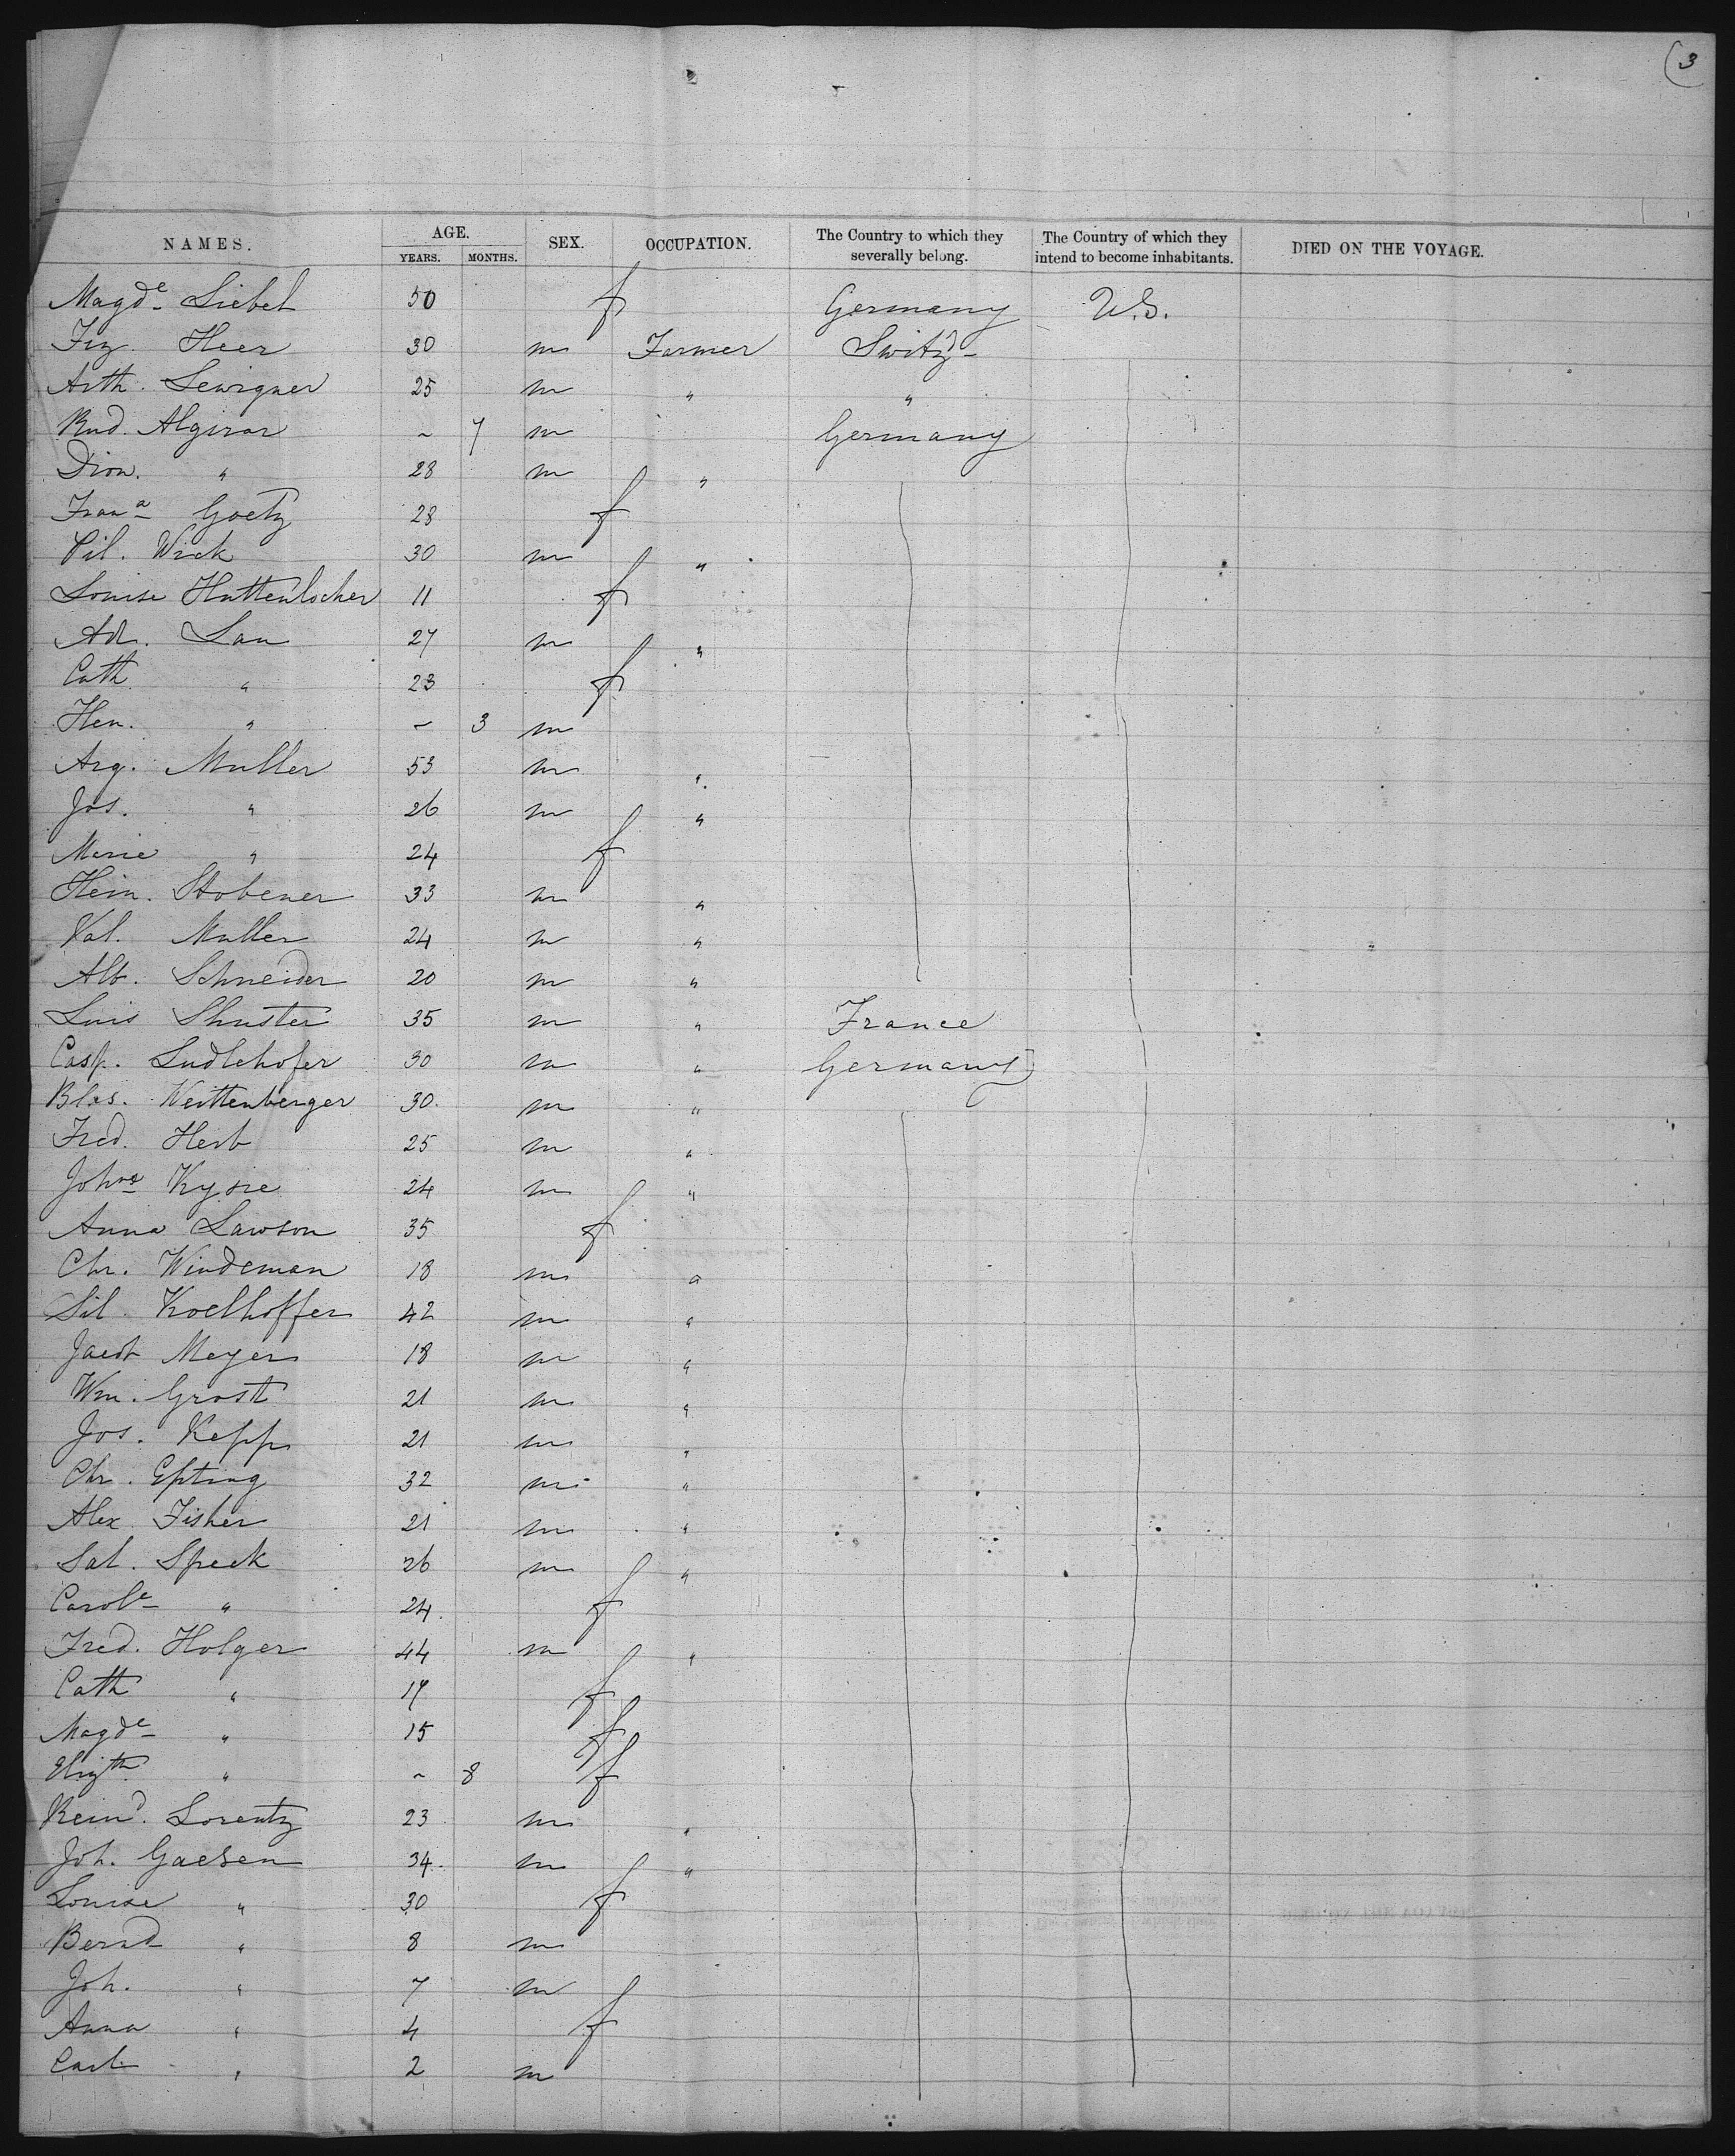 (3
NAMES. AGE. YEARS. MONTHS. SEX. OCCUPATION. The Country to which they severally belong. The Country of which they intend to become inhabitants. DIED ON THE VOYAGE.
Magde Siebel 50 f Germany U.S.
Heer 30 m Farmer Switzd
Arth. 25 m " "
Rud. Algirar ~ 7 m Germany
Dion. " 28 m "
Frana Goetz 28 f
Pil. Wick 30 m "
Louise Huttenlocher 11 f
Ad. Lau 27 m "
Cath " 23 f
Hen. " ~ 3 m
Arg. Muller 53 m "
Jos. " 26 m "
Marie " 24 f
Hein. Stobener 33 m "
Val. Muller 24 m "
Alb. Schneider 20 m "
Luis Shuster 35 m " France
Casp. Sudlehofer 30 m " Germany
Blas. Weittenberger 30 m "
Fred. Herb 25 m "
Kysie 24 m "
Anna Lawson 35 f
Chr. Windeman 18 m "
Sil. Koelhoffer 42 m "
Jacob Meyer 18 m "
Wm. Grost 21 m "
Jos. Kepp 21 m "
Chr. Epting 32 m "
Alex Fisher 21 m "
Sal. Speck 26 m "
Carole " 24 f
Fred. Holger 44 m "
Cath " 17 f
Magde " 15 f
Elizth " ~ 8 f
Reind. Lorentz 23 m "
Joh. Gaesen 34 m "
Louise " 30 f
Bernd " 8 m
Joh. " 7 m
Anna " 4 f
Carl " 2 m